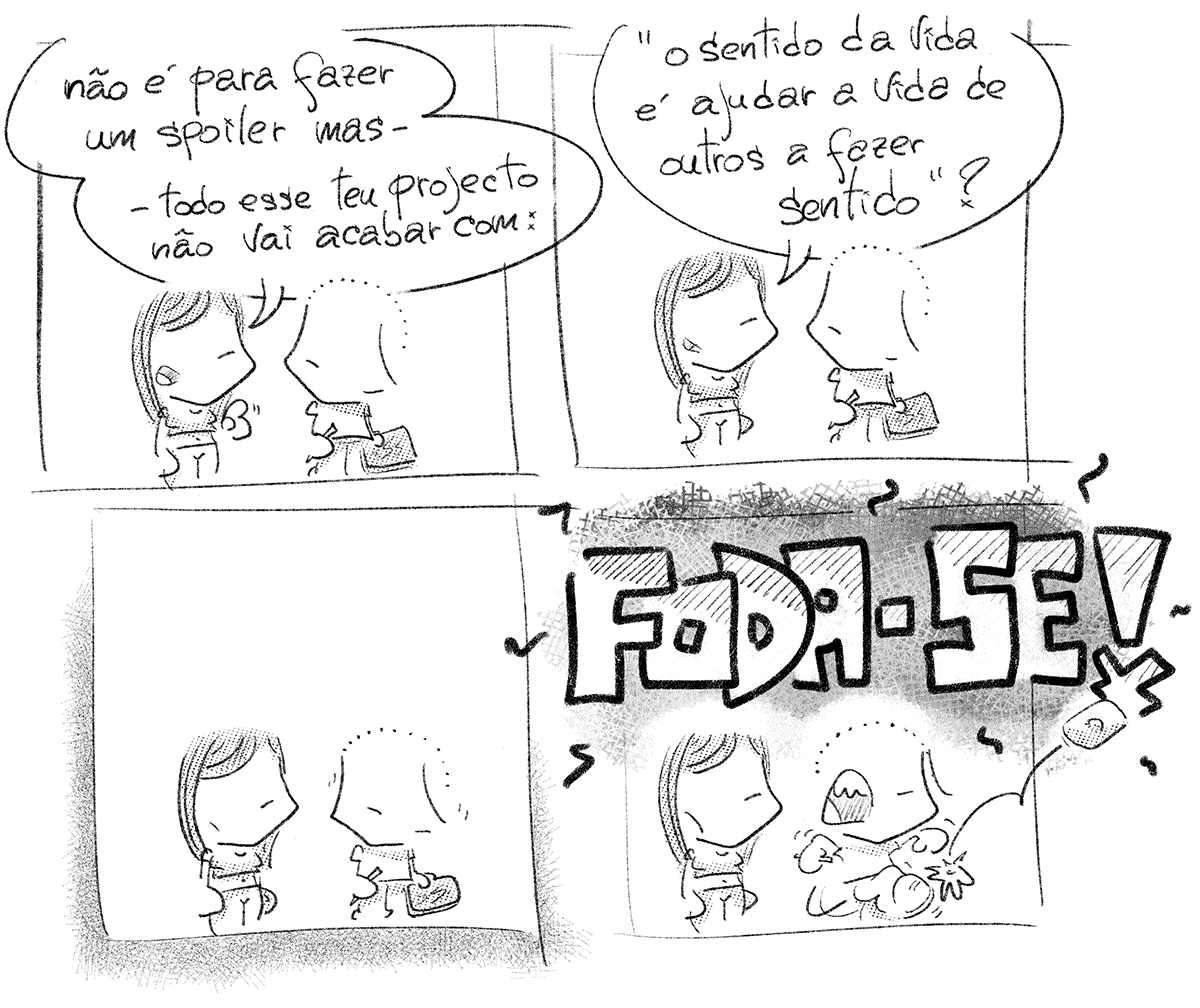 não é para fazer
um spoiler mas-
-todo esse teu projecto
não vai acabar com:
"o sentido da vida
é ajudar a vida de
outros a fazer
sentido"?
FODA-SE!